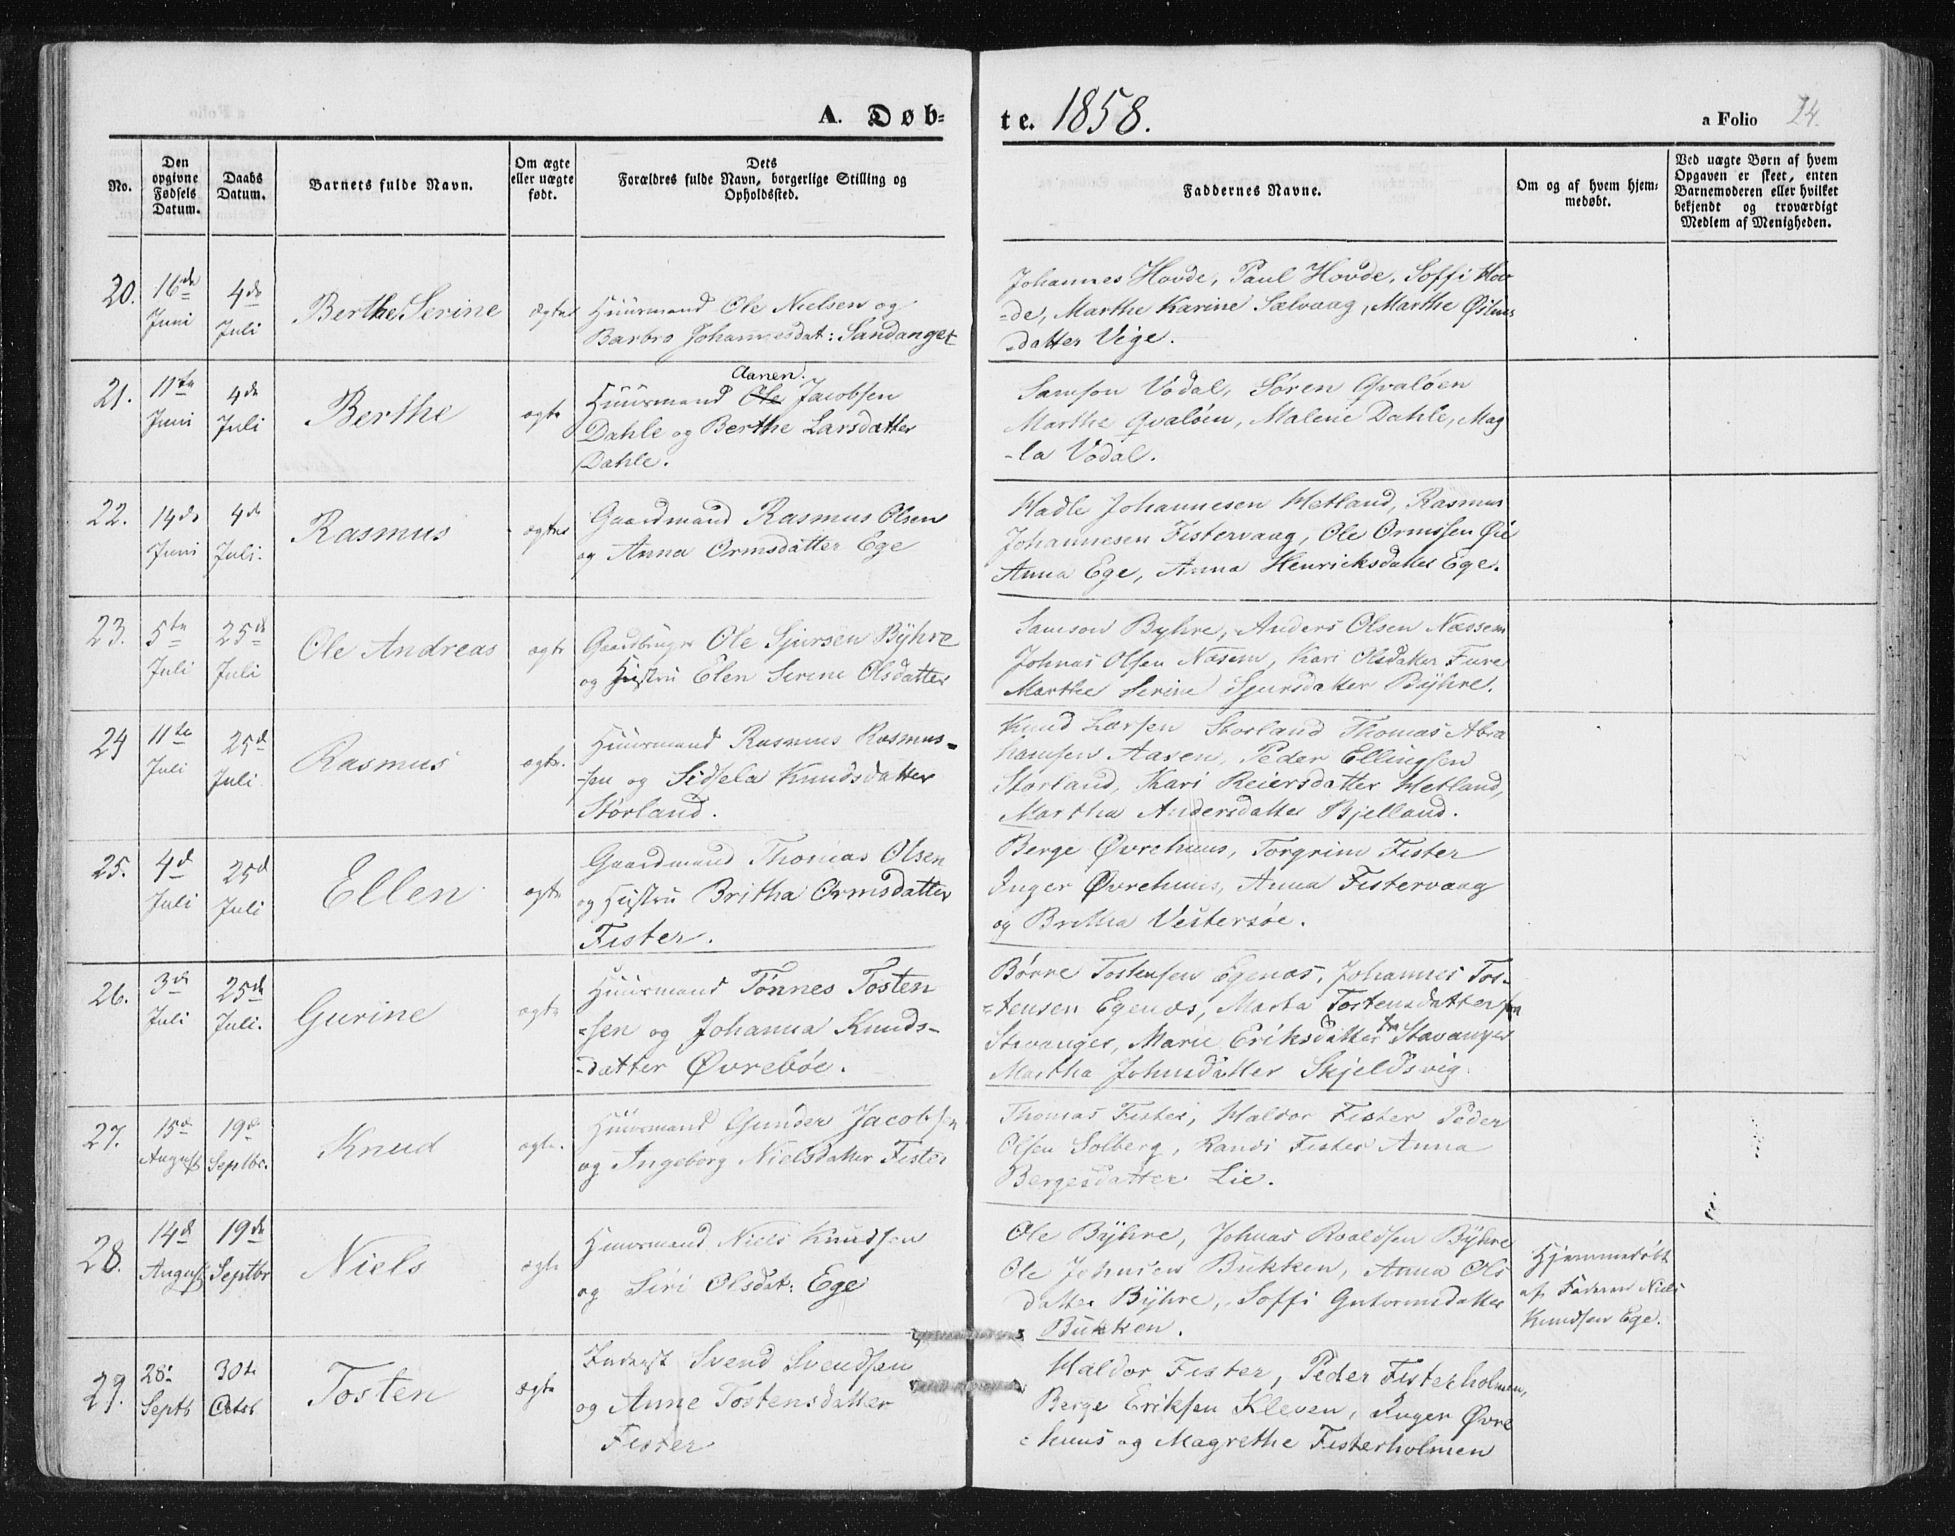 A. Døb-
te. 1858.
a Folio 24.
No.
Den opgivne Fødsels Datum.
Daabs Datum.
Barnets fulde Navn.
Om ægte eller uægte født.
Dets Forældres fulde Navn, borgerlige Stilling og Opholdssted.
Faddernes Navne.
Om og af hvem hjem- medøbt.
Ved uægte Børn af hvem Opgaven er skeet, enten Barnemoderen eller hvilket bekjendt og troværdigt Medlem af Menigheden.
20. 16de Juni 4de Juli Berthe Serine ægte
Huusmand Ole Nielsen og
Barbro Johannesdat: Sandanger
Johannes Hovde, Paul Hovde, Soffi Hov
-de, Marthe Karine Sælvaag, Marthe Østens
-datter Vige.
21. 11te Juni 4de Juli Berthe ægte
Aanen.
Huusmand Ole Jacobsen
Dahle og Berthe Larsdatter
Dahle.
Samson Vodal, Søren Qvaløen
Marthe Qvaløen, Malene Dahle, Mag
-la Vodal.
22. 14de Juni 4de Juli. Rasmus ægte
Gaardmand Rasmus Olsen
og Anna Ormsdatter Ege
Hadle Johannesen Hetland, Rasmus
Johannesen Fistervaag, Ole Ormssen Øie
Anna Ege, Anna Henricksdatter Ege.
23. 5te Juli 25de Juli Ole Andreas ægte
Gaardbruger Ole Sjursen Byhre
og Hustru Elen Serine Olsdatter
Samson Byhre, Anders Olsen Næssem
Johnas Olsen Næsem, Kari Olsdatter Fure
Marthe Serine Sjursdatter Byhre.
24 11te Juli 25d Juli Rasmus ægte.
Huusmand Rasmus Rasmus-
-sen og Sidsela Knudsdatter
Storland.
Knud Larsen Storland Thomas Abra
hamsen Aasen, Peder Ellingsen
Storland, Kari Reiersdatter Hetland,
Martha Andersdatter Bjelland.
25. 4d Juli 25d Juli Ellen ægte
Gaardmand Thomas Olsen
og Hustru Britha Ormsdatter
Fister.
Berge Øvrehuus, Torgrim Fister
Inger Øvrehuus, Anna Fistervaag
og Britha Vestersøe.
26. 3de Juli 25de Juli. Gurine ægte
Huusmand Tønnes Tosten
-sen og Johanna Knuds-
-datter Øvrebøe.
Børre Tostensen Egenæs, Johannes Tos-
-tensen Egenæs, Marta Tostensdatter fra
Stavanger, Marie Eriksdatter fra Stavanger
Martha Johnsdatter Skjeldsvig
27. 15de August 19de Septbr. Knud ægte.
Huusmand Gunder Jacobsen
og Ingeborg Nielsdatter Fister
Thomas Fister, Haldor Fister Peder
Olsen Solberg, Randi Fister Anna
Bergesdatter Lie.
28. 14d August 19de Septbr Niels ægte
Huusmand Niels Knudsen
og Siri Olsdat: Ege
Ole Byhre, Johnas Roaldsen Byhre
Ole Johnsen Bukken, Anna Ols
datter Byhre, Soffi Gutormsdatter
Bukken.
Hjemmedøbt
af Faderen Niels
Knudsen Ege.
29. 28. Septb 30te Octbr Tosten ægte
Inderst Svend Svendsen
og Anne Tostensdatter
Fister
Haldor Fister, Peder Fisterholmen,
Berge Eriksen Kleven, Inger Øvre
-huus og Magrethe Fisterholmen